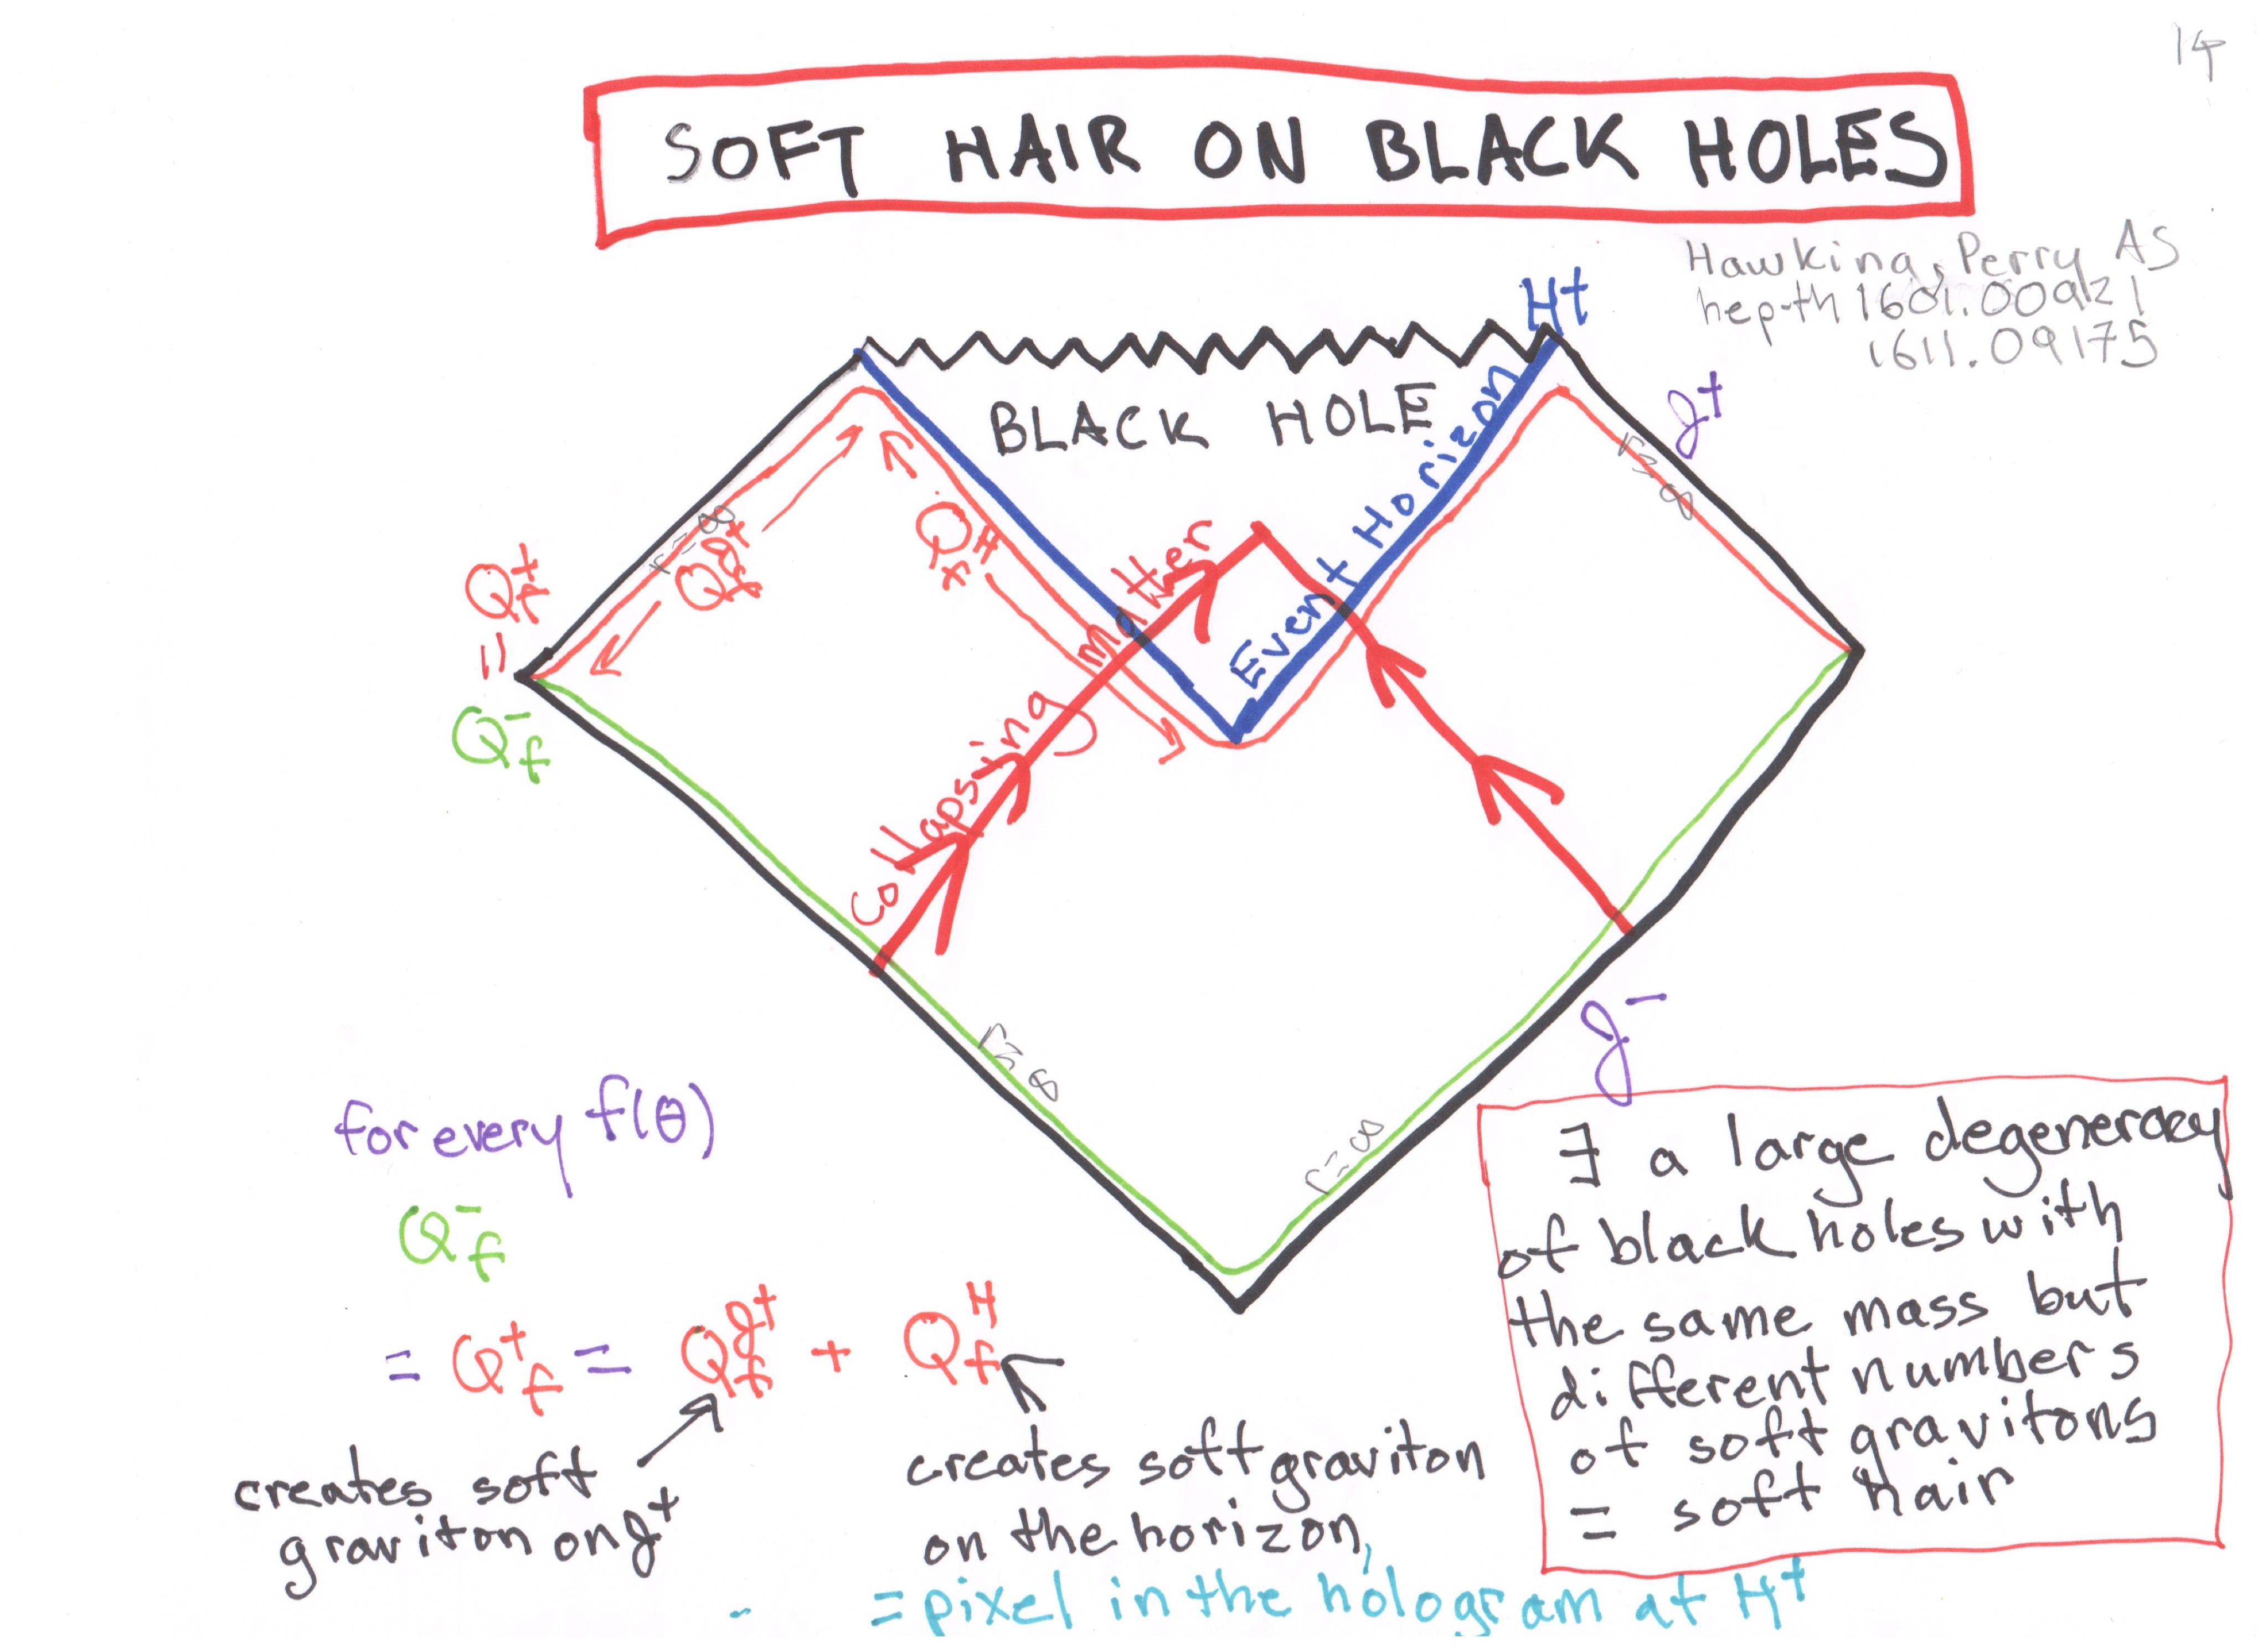 14
SOFT HAIR ON BLACK HOLES
Hawking, Perry AS
hep-th 1601.00921
1611.09175
H+
BLACK HOLE
Event Horizon
𝓘+
r=∞
r=∞
Q_f^𝓘+
Q_f^H
Q_f^+
=
Q_f^-
Collapsing Matter
𝓘-
r=∞
r=∞
for every f(θ)
Q_f^-
= Q_f^+ = Q_f^𝓘+ + Q_f^H
creates soft
graviton on 𝓘+
creates soft graviton
on the horizon,
= pixel in the hologram at H+
∃ a large degeneracy
of black holes with
the same mass but
different numbers
of soft gravitons
= soft hair